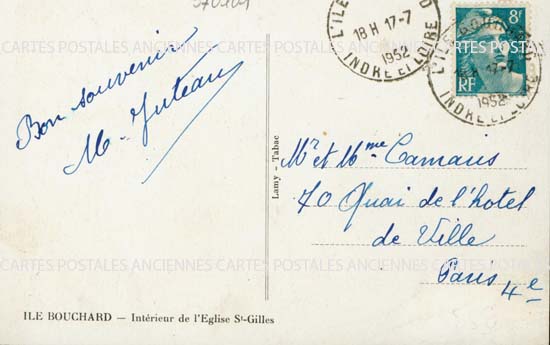 L'ILE BOUCHARD
18H 17-7
1952
INDRE ET LOIRE
8F
RF
17-7
1952
INDRE ET LOIRE
Bon souvenir
M. Juteau
Lamy - Tabac
Mr et Mme Camaris
70 Quai de l'hotel
de Ville
Paris 4e
CARTES POSTALES ANCIENNES CARTES POSTALES ANCIENNES CARTES POSTALES
CARTES POSTALES ANCIENNES CARTES POSTALES ANCIENNES CARTES POSTALES
ILE BOUCHARD — Intérieur de l'Eglise St-Gilles